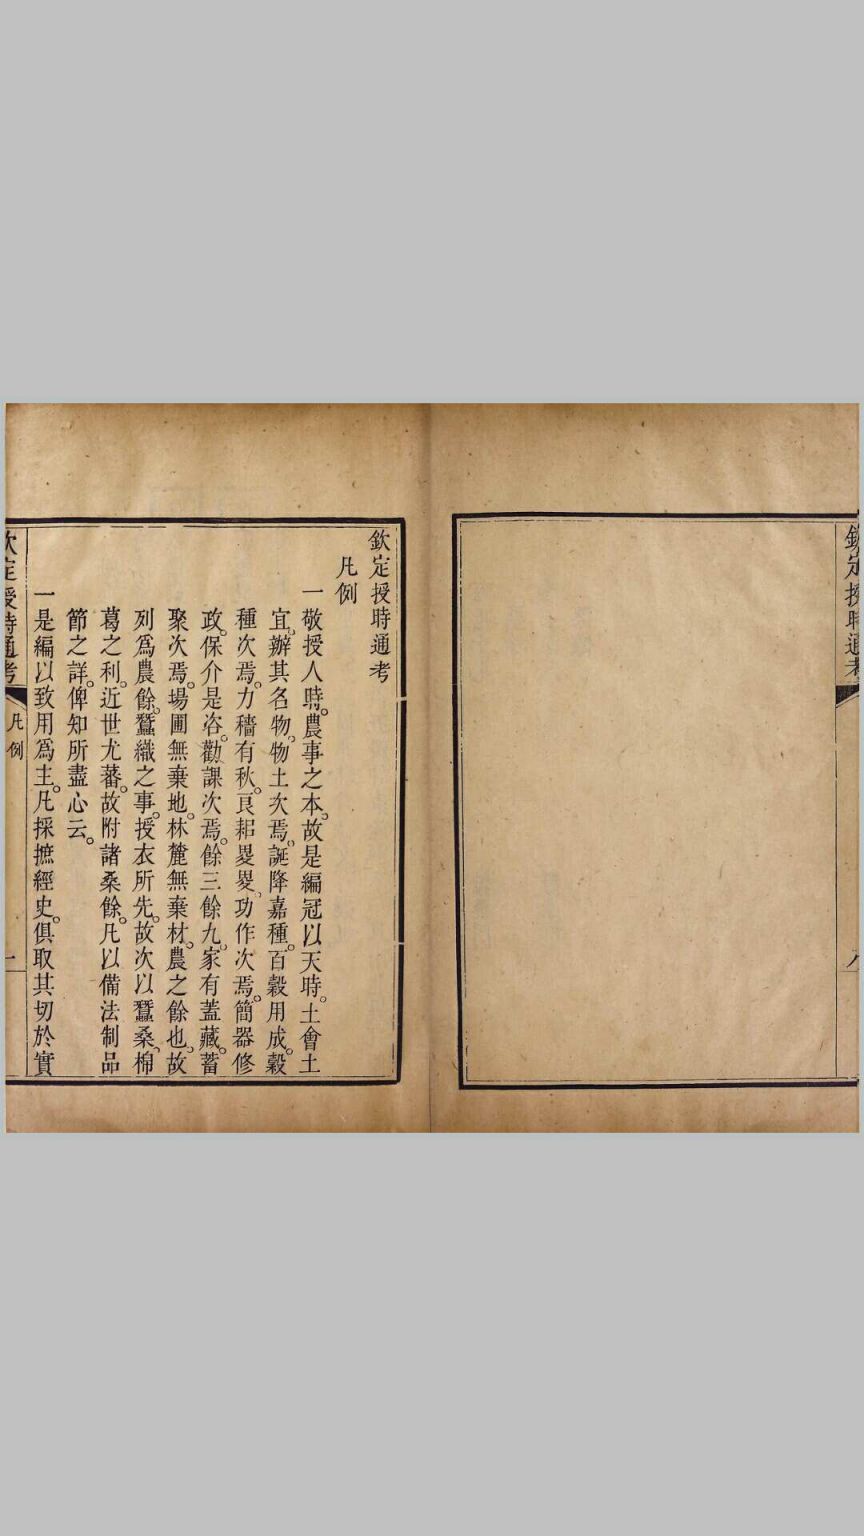 欽定授時通考
欽定授時通考
凡例
一敬授人時。農事之本。故是編冠以天時。土會土
宜。辦其名物。物土次焉。誕降嘉種。百穀用成。穀
種次焉。力穡有秋。良耜畟畟。功作次焉。簡器修
政。保介是咨。勸課次焉。餘三餘九。家有蓋藏。蓄
聚次焉。場圃無棄地。林麓無棄材。農之餘也。故
列爲農餘。蠶織之事。授衣所先。故次以蠶桑。棉
葛之利。近世尤蕃。故附諸桑餘。凡以備法制品
節之詳。俾知所盡心云。
一是編以致用爲主。凡採摭經史。俱取其切於實
欽定授時通考 凡例 一